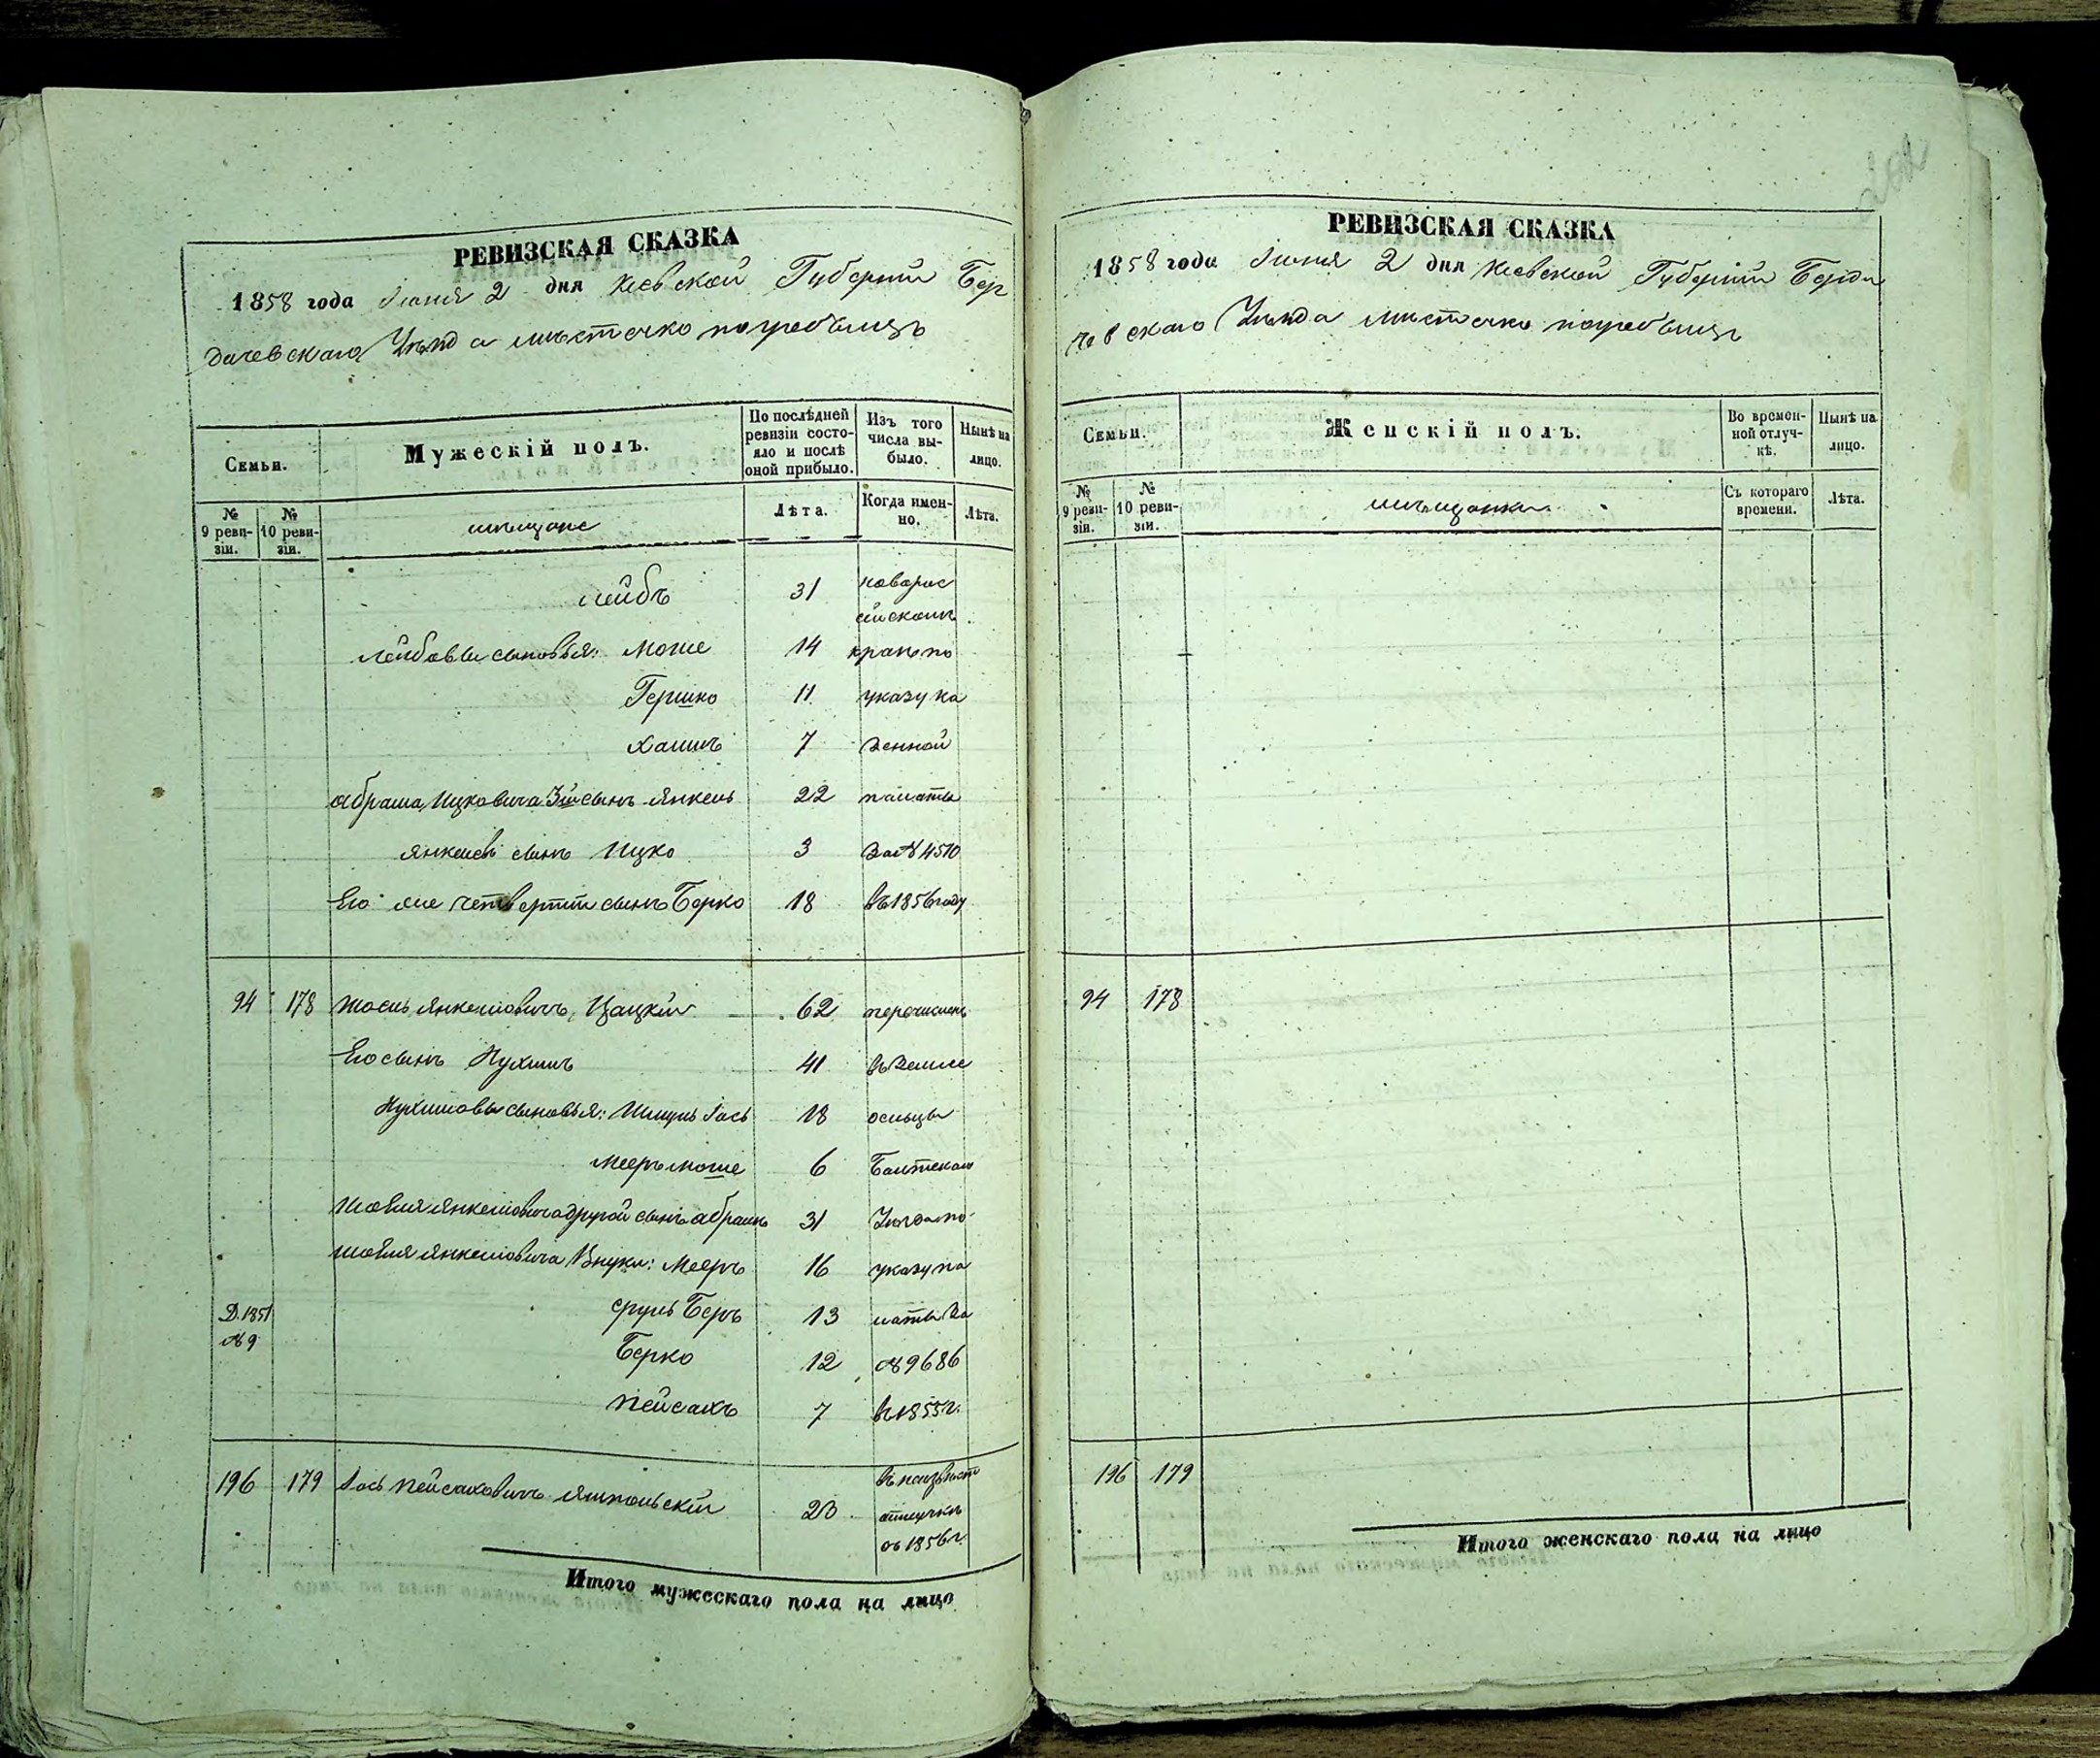 РЕВИЗСКАЯ СКАЗКА
1858 года Iюня 2 дня Кіевской Губерніи Бер
дичевскаго Уѣзда мѣстечко погребыщъ
Семьи.
Мужескій полъ.
По послѣдней ревизіи состояло и послѣ оной прибыло.
Изъ того числа выбыло.
Нынѣ на лицо.
№ 9 ревизіи.
№ 10 ревизіи.
мѣщане
Лѣта.
Когда именно.
Лѣта.
Лейбъ 31 новорос
сійскомъ
Лейбовы сыновья: Моше 14 краѣ по
Гершко 11 указу ка
Хаимъ 7 зенной
Абрама Ицковича 3й сынъ Янкель 22 палаты
Янкелевъ сынъ Ицко 3 За № 4510
Его же четвертый сынъ Берко 18 въ 1856 году
94 178 Янкелiовичъ Цацкiй 62 перечисленъ
Его сынъ Нухимъ 41 въ Земле
Нухимовы сыновья: Шмуль Iось 18 дельцы
Мееръ Моше 6 Балтскаго
Янкелiовича другой сынъ Абрамъ 31 Уѣзда по
Янкелiовича Внуки: Мееръ 16 указу па
Д. 1851 Сруль Беръ 13 латы За
№ 9
Берко 12 № 9686
Пейсахъ 7 въ 1855 г.
196 179 Iось Пейсаховичъ Ямпольскiй 20 въ неизвѣст
отлучкѣ
съ 1856 г.
Итого мужескаго пола на лицо
РЕВИЗСКАЯ СКАЗКА
1858 года Iюня 2 дня Кіевской Губерніи Берди
чевскаго Уѣзда мѣстечко погребыщъ
Семьи.
Женскій полъ.
Во временной отлучкѣ.
Нынѣ на лицо.
№ 9 ревизіи.
№ 10 ревизіи.
мѣщанки
Съ котораго времени.
Лѣта.
94 178
196 179
Итого женскаго пола на лицо